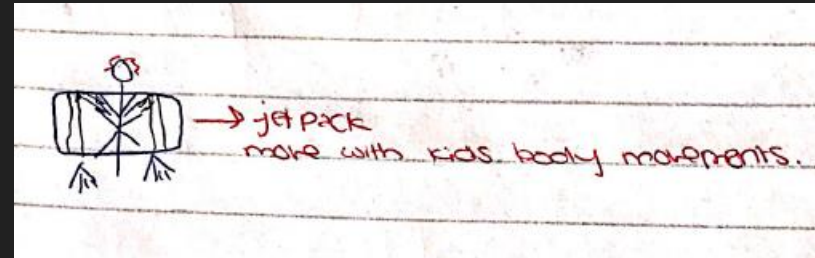 → jet pack
move with kids body movements.